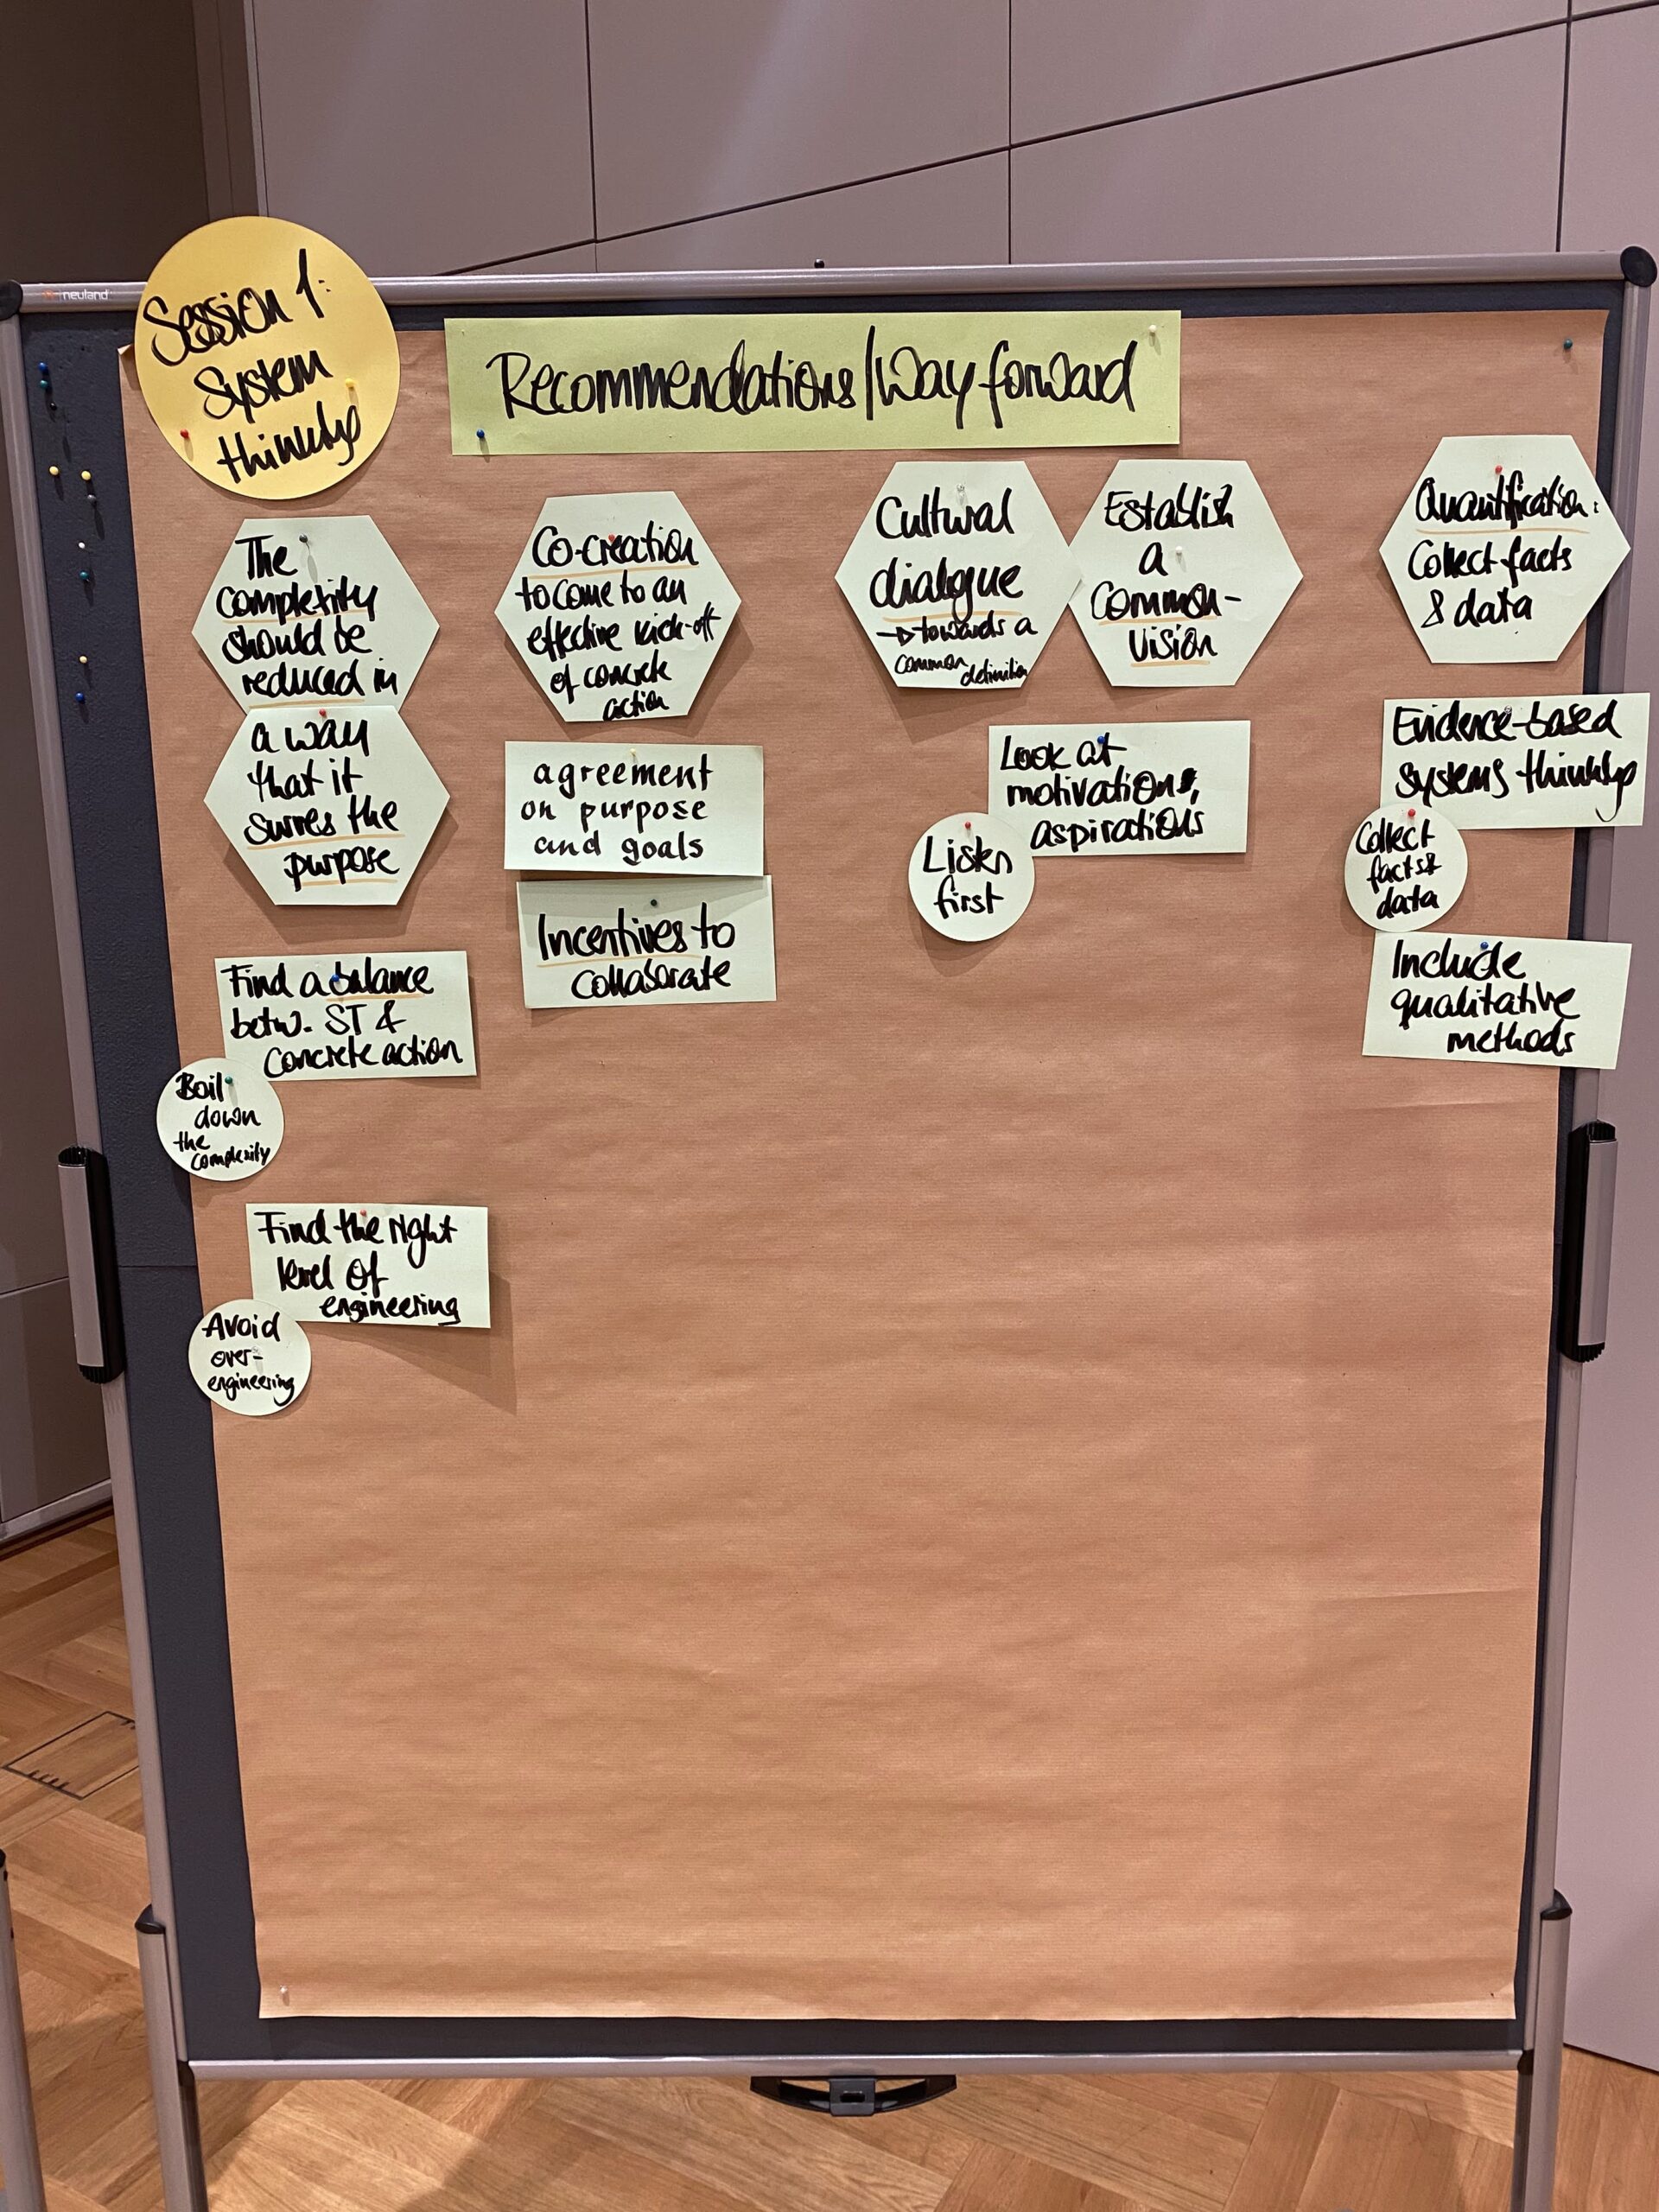 neuland
Session 1:
System
thinking
Recommendations/Way forward
The
complexity
should be
reduced in
a way
that it
surves the
purpose
Find a balance
betw. ST &
Concrete action
Boil
down
the
complexity
Find the right
level of
engineering
Avoid
over-
engineering
Co-creation
to come to an
effective kick-off
of concrete
action
agreement
on purpose
and goals
Incentives to
collaborate
Cultural
dialogue
→ towards a
common
definition
Establish
a
Common-
Vision
Look at
motivations,
aspirations
Listen
first
Quantification:
Collect facts
& data
Evidence-based
systems thinking
Collect
facts &
data
Include
qualitative
methods